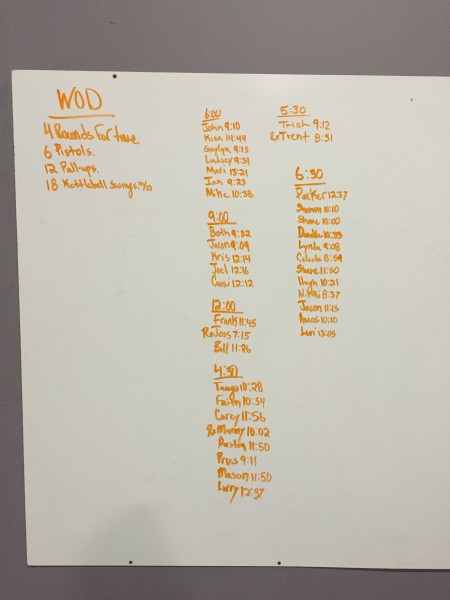 WOD
4 Rounds For time
6 Pistols.
12 Pullups.
18 Kettlebell Swings
6:00
John 9:10
Kim 14:44
9:15
Lindsey 9:31
Mari 13:21
Ian 9:23
Mike 10:38
9:00
Beth 9:32
Jason 9:09
Kris 12:14
Joel 12:16
Cassi 12:12
12:00
Frank 11:45
Rx Joss 7:15
Bill 11:26
4:30
10:28
Faith 10:34
Corey 11:56
Rx Manny 10:02
Dustin 11:50
9:11
Mason 11:50
Larry 12:37
5:30
Trish 9:12
Rx Trent 8:51
6:30
Parker 12:37
Shannon 10:10
Shane 10:00
10:33
Lynda 9:08
Celeste 8:59
Shane 11:50
Hugh 10:21
Nikki 8:37
Jason 11:15
Amos 10:10
Levi 13:05